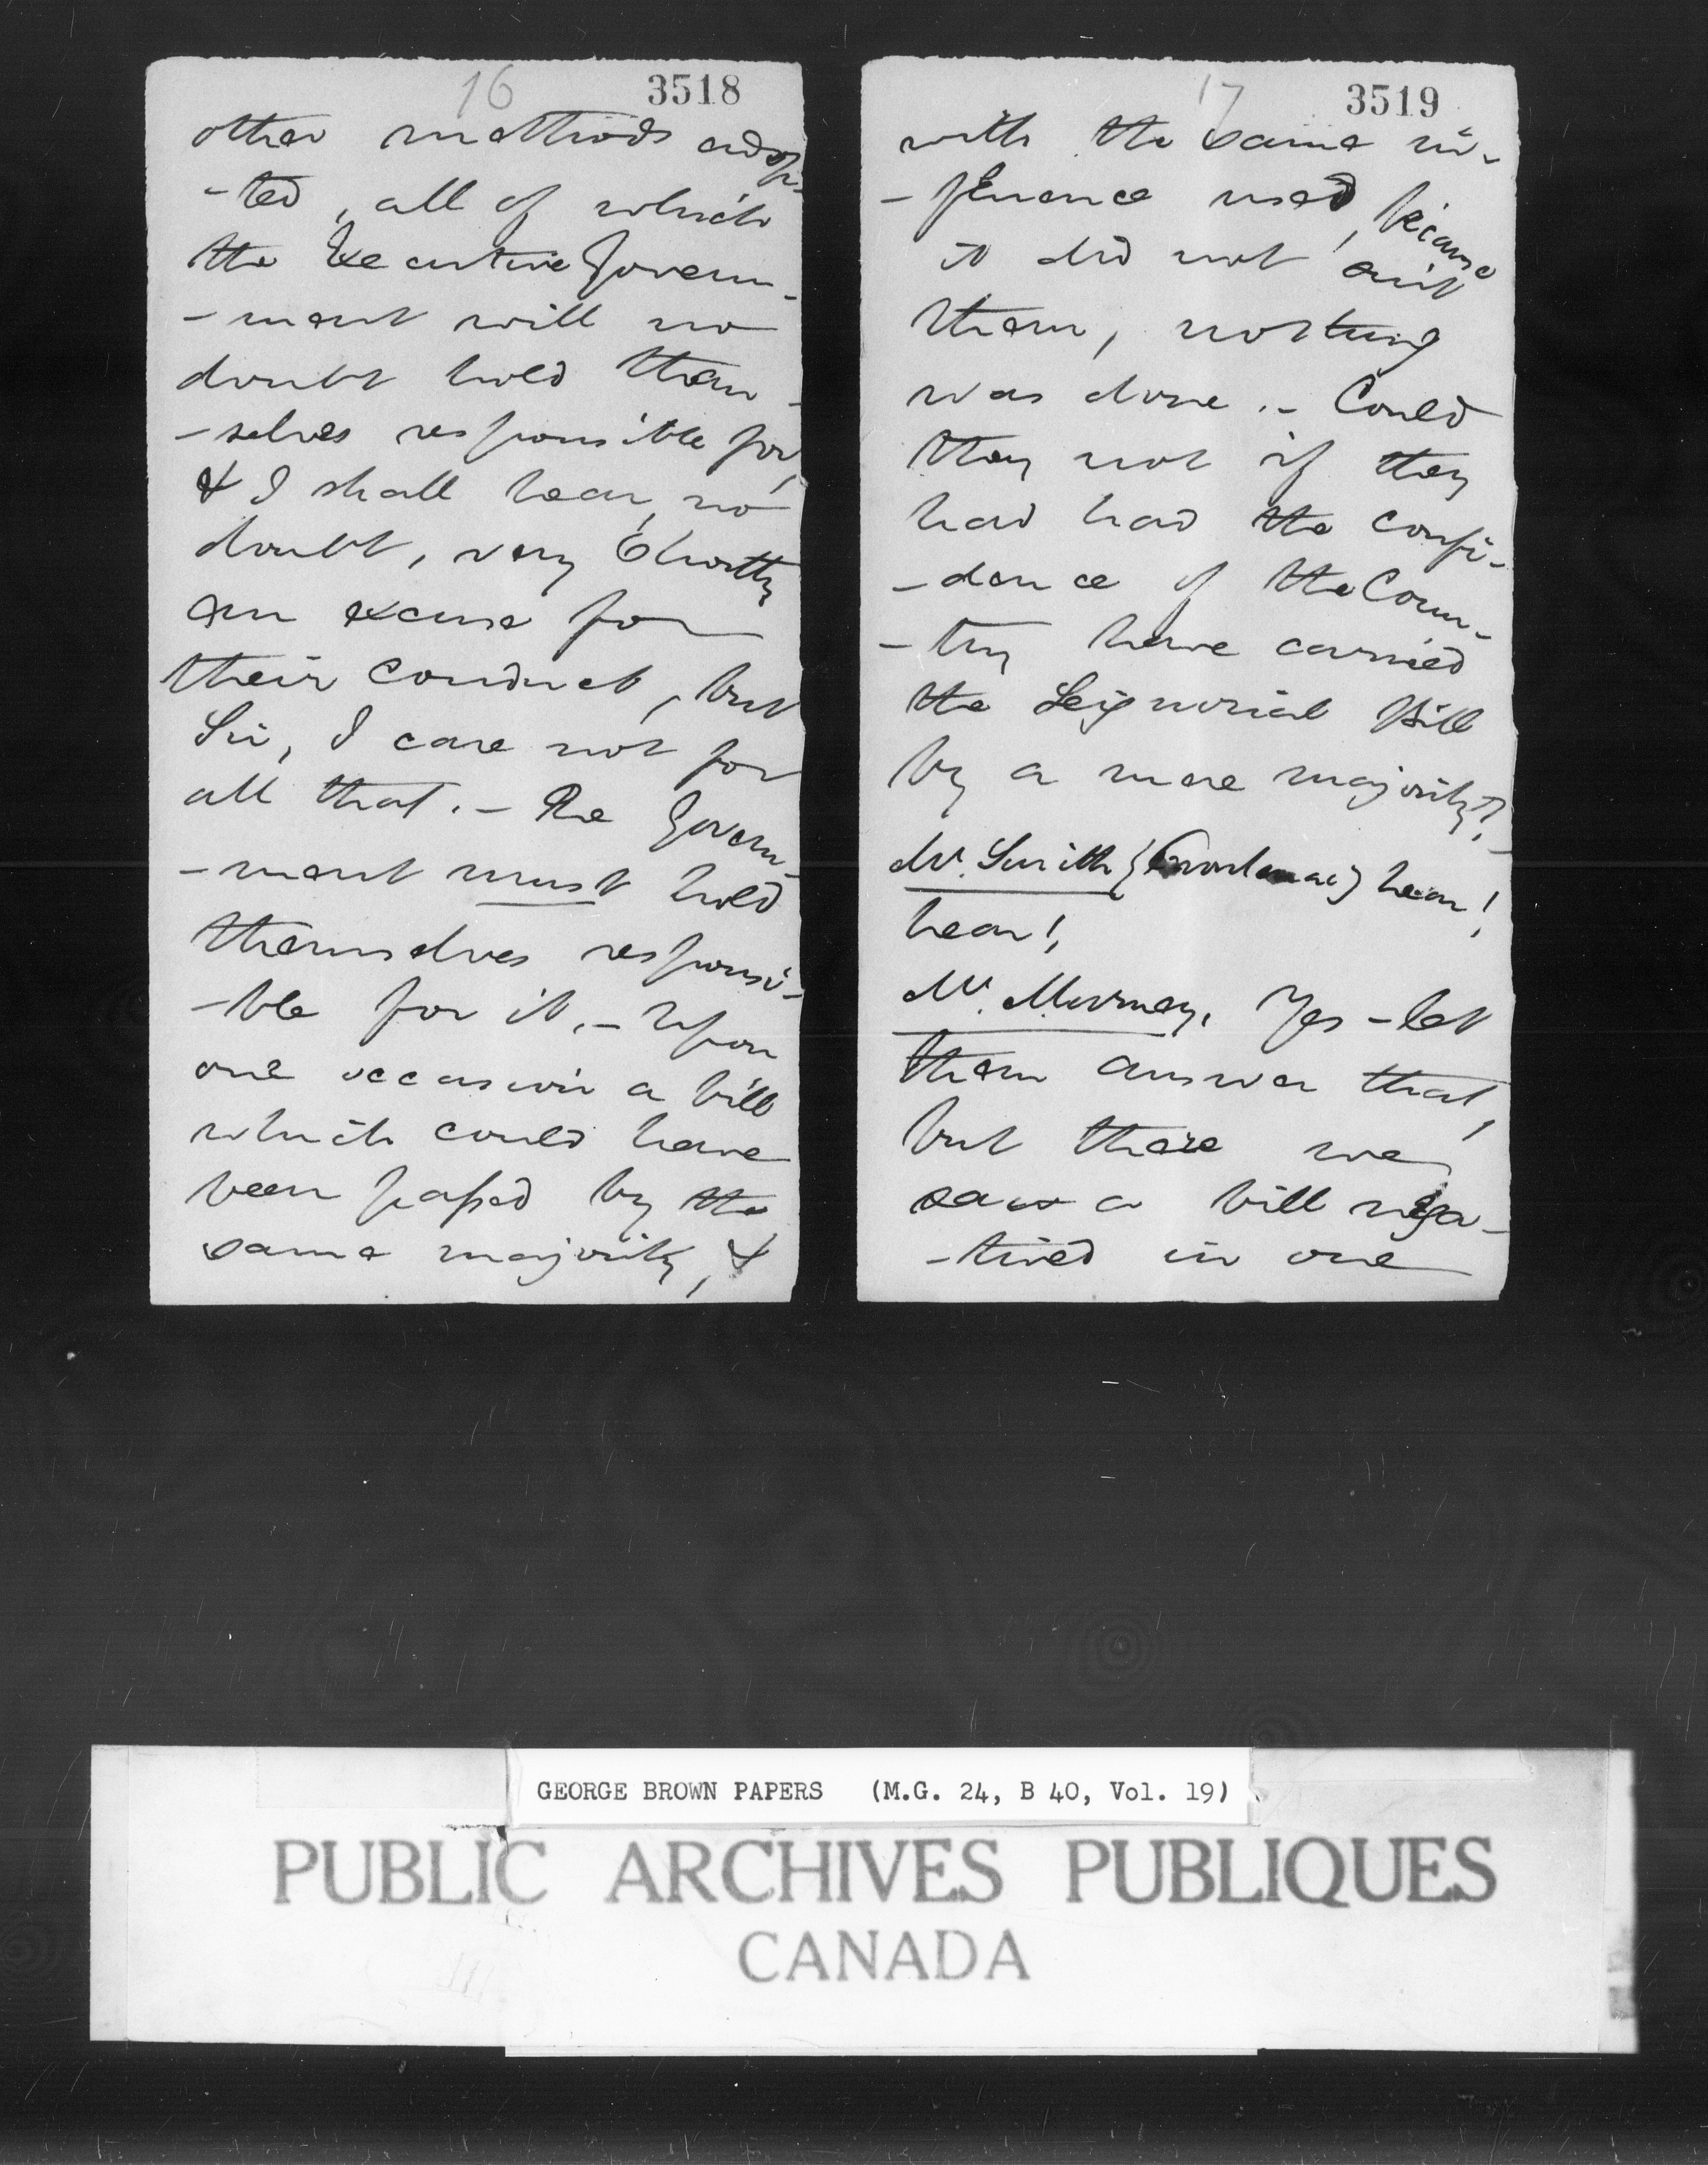 16 3518
other methods adop-
-ted, all of which
the Executive Govern-
-ment will no
doubt hold them-
-selves responsible for,
& I shall hear, no
doubt, very shortly
an excuse for
their conduct, but
Sir, I care not for
all that. - The Govern-
-ment must hold
themselves responsi-
-ble for it. - Upon
one occasion a bill
which could have
been passed by the
same majority, &
17 3519
with the same in-
-fluence used, because
it did not suit
them, nothing
was done. - Could
they not if they
had had the confi-
-dence of the Coun-
-try have carried
the Seignorial Bill
by a mere majority? -
Mr. Smith (Frontenac) hear!
hear!,
Mr. Morney. Yes - let
them answer that,
but there we
saw a bill nega-
-tived in one
GEORGE BROWN PAPERS (M.G. 24, B 40, Vol. 19)
PUBLIC ARCHIVES PUBLIQUES
CANADA